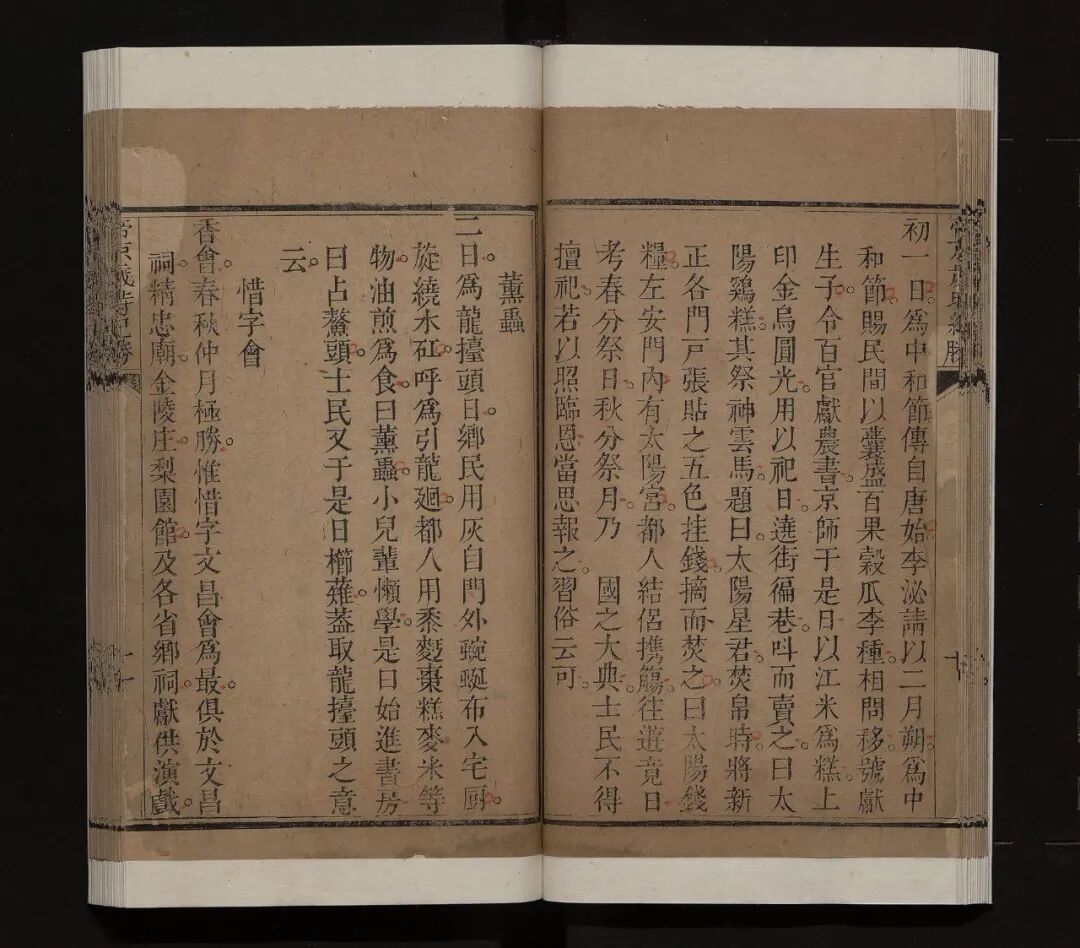 初一日爲中和節傳自唐始李泌請以二月朔爲中
和節賜民間以囊盛百果穀瓜李種相問移號獻
生子令百官獻農書京師于是日以江米爲糕上
印金烏圓光用以祀日遶街徧巷呌而賣之曰太
陽鷄糕其祭神雲馬題曰太陽星君焚帛時將新
正各門戸張貼之五色挂錢摘而焚之曰太陽錢
糧左安門內有太陽宮都人結侶攜觴往遊竟日
考春分祭日秋分祭月乃 國之大典士民不得
擅祀若以照臨恩當思報之習俗云可
薰蟲
二日爲龍擡頭日鄉民用灰自門外蜿蜒布入宅厨
旋繞水缸呼爲引龍廻都人用黍麪棗糕麥米等
物油煎爲食曰薰蟲小兒輩懶學是日始進書房
曰占鰲頭士民又于是日櫛薙葢取龍擡頭之意
云
惜字會
香會春秋仲月極勝惟惜字文昌會爲最俱於文昌
祠精忠廟金陵庄梨園館及各省鄉祠獻供演戲
帝京歲時紀勝
十一